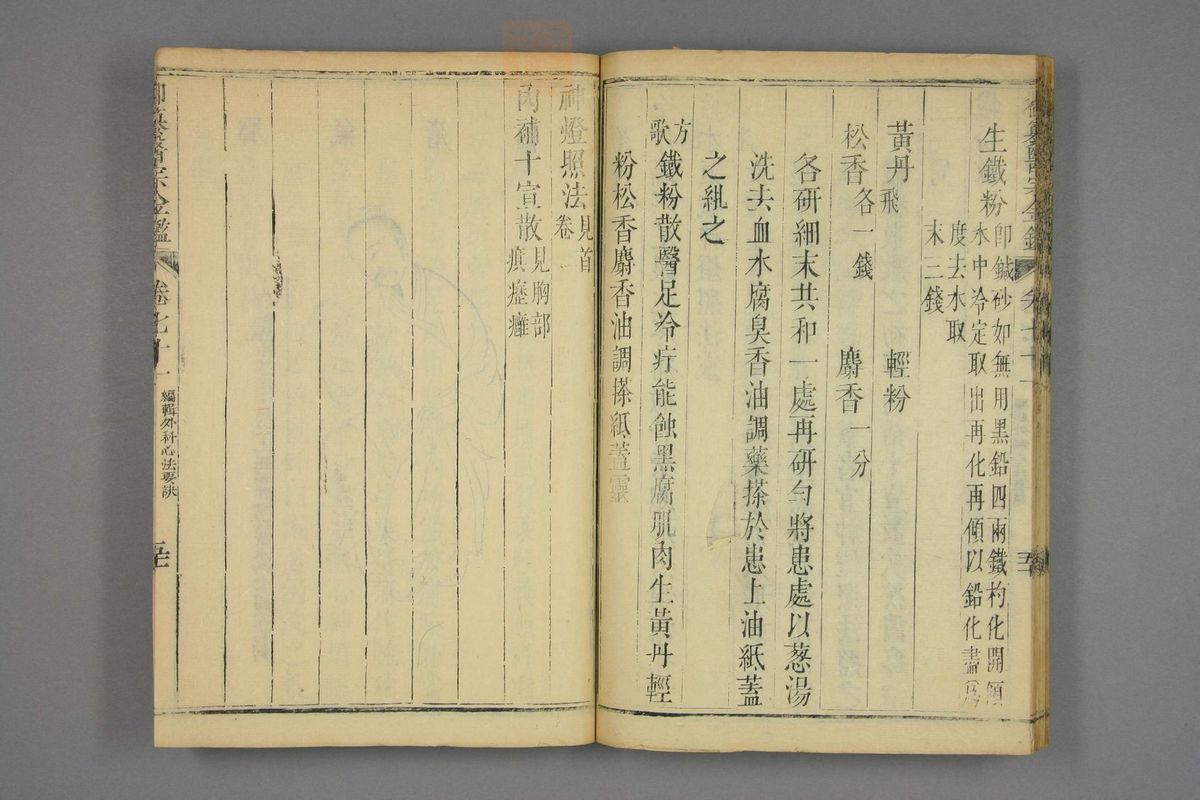 生鐵粉 卽鍼砂如無用黑鉛四兩鐵杓化開傾
水中冷定取出再化再傾以鉛化盡爲
度去水取
末三錢
黃丹飛 輕粉
松香各一錢 麝香一分
各研細末共和一處再研勻將患處以葱湯
洗去血水腐臭香油調藥搽於患上油紙蓋
之紮之
方歌 鐵粉散醫足冷疔能蝕黑腐肌肉生黃丹輕
粉松香麝香油調搽紙蓋靈
神燈照法 見首卷
內補十宣散 見胸部
疽癰
御纂醫宗金鑑 卷七十一 編輯外科心法要訣